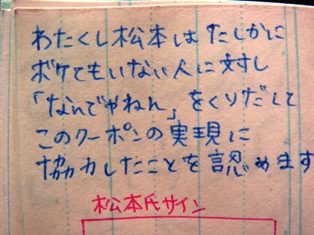 わたくし松本はたしかに
ボケてもいない人に対し
「なんでやねん」をくりだして
このクーポンの実現に
協力したことを認めます
松本氏サイン